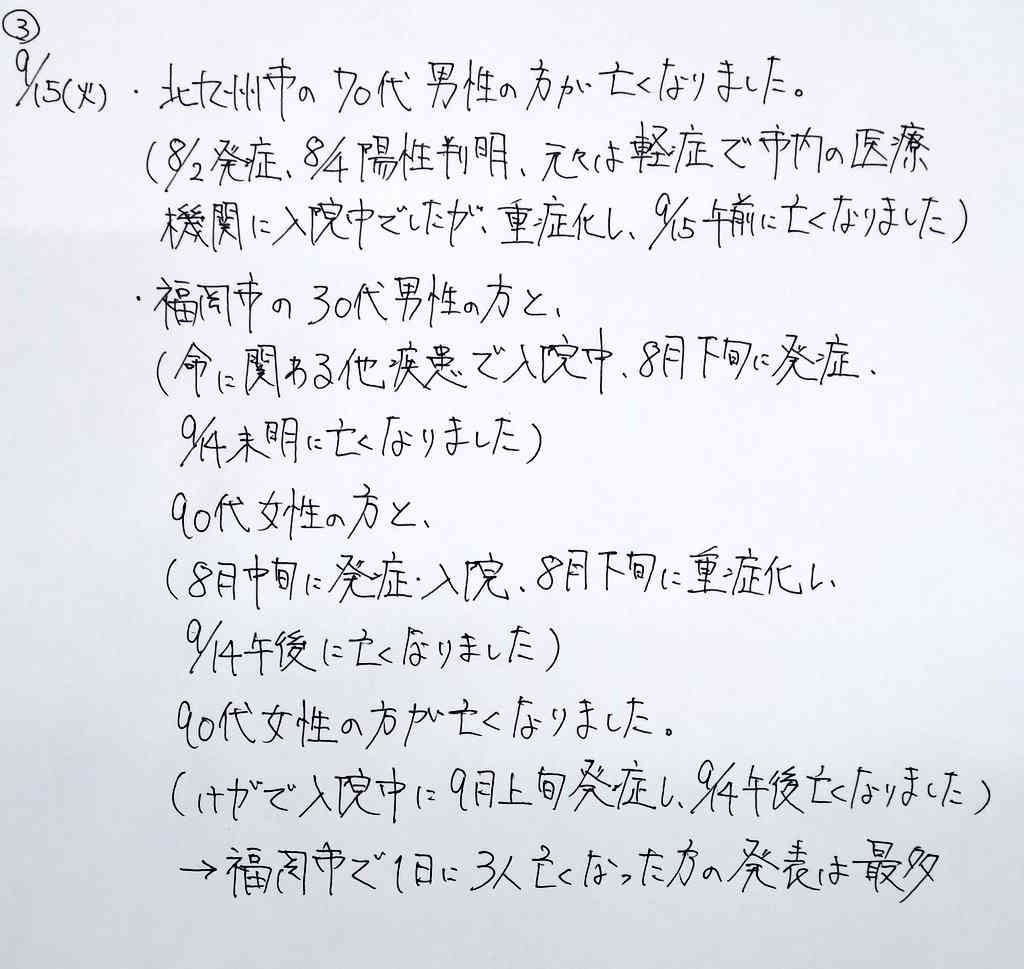 ③
9/15(火)・北九州市の70代男性の方が亡くなりました。
(8/2発症、8/4陽性判明、元々は軽症で市内の医療
機関に入院中でしたが、重症化し、9/15午前に亡くなりました)
・福岡市の30代男性の方と、
(命に関わる他疾患で入院中、8月下旬に発症、
9/14未明に亡くなりました)
90代女性の方と、
(8月中旬に発症・入院、8月下旬に重症化し、
9/14午後に亡くなりました)
90代女性の方が亡くなりました。
(けがで入院中に9月上旬発症し、9/14午後亡くなりました)
→福岡市で1日に3人亡くなった方の発表は最多